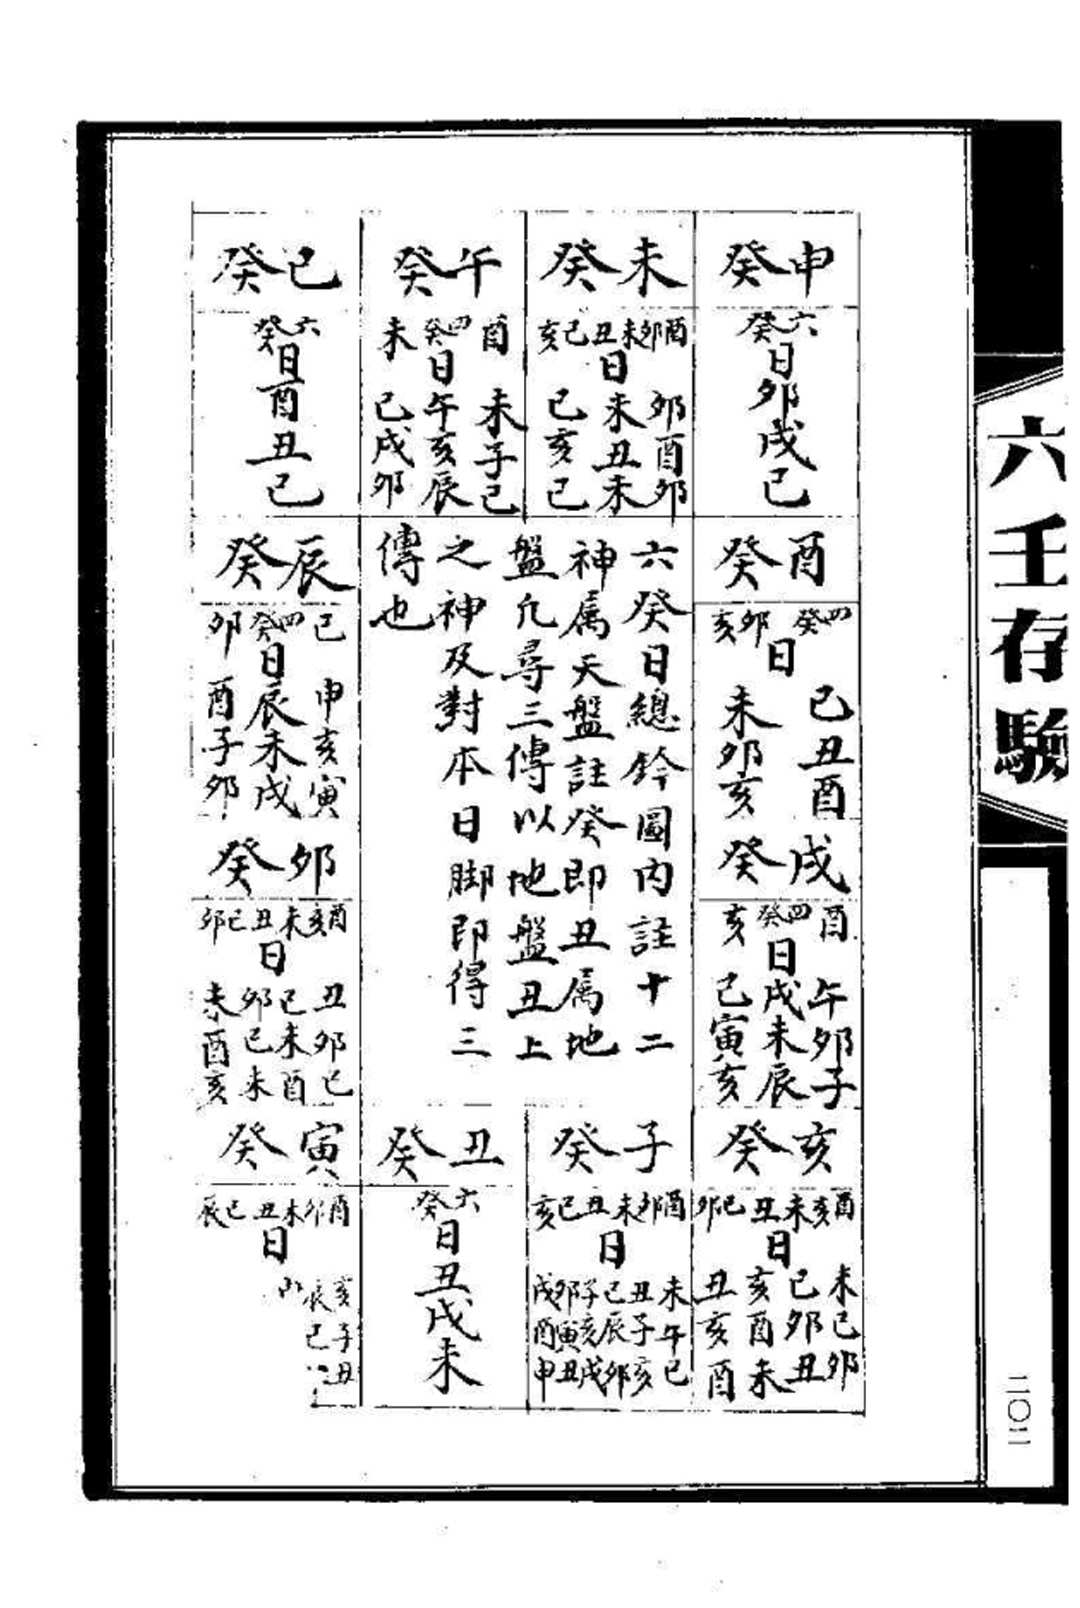 六壬存驗
二〇二
申癸
六癸日
卯戌巳
未癸
酉卯未丑巳亥日
卯酉卯
未丑未
巳亥巳
午癸
酉四癸未日
未子巳
午亥辰
巳戌卯
巳癸
六癸日
酉丑巳
酉癸
四癸卯亥日
巳丑酉
未卯亥
六癸日總鈐圖內註十二
神属天盤註癸即丑属地
盤凢尋三傳以地盤丑上
之神及對本日脚即得三
傳也
辰癸
巳四癸卯日
申亥寅
辰未戌
酉子卯
戌癸
酉四癸亥日
午卯子
戌未辰
巳寅亥
卯癸
酉亥未丑巳卯日
丑卯巳
巳未酉
卯巳未
未酉亥
亥癸
酉亥未丑巳卯日
未巳卯
巳卯丑
亥酉未
丑亥酉
子癸
酉卯未丑巳亥日
未午巳
丑子亥
巳辰卯
子亥戌
卯寅丑
戌酉申
丑癸
六癸日
丑戌未
寅癸
酉卯未丑巳辰日
亥子丑
辰巳